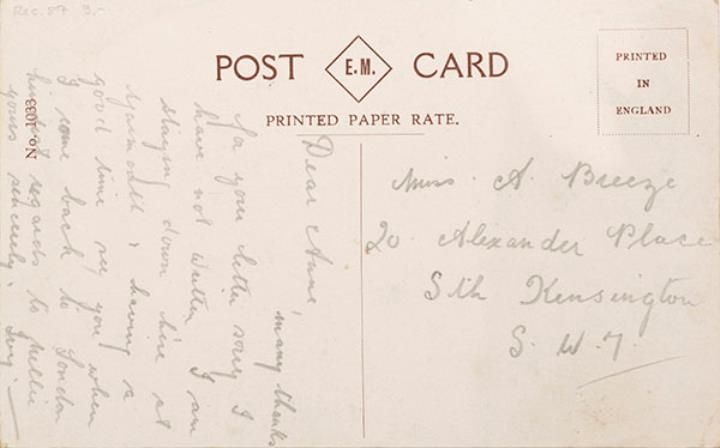 Rec. 84 3.-
POST CARD
E.M.
PRINTED PAPER RATE.
PRINTED
IN
ENGLAND
No. 1033
Dear Anne,
many thanks
for your letter sorry I
have not written I am
staying down here at
Yarmouth & having a
good time see you when
I come back to London
kindest regards to Nellie
yours sincerely, Ivy.
Miss. A. Breeze
20. Alexander Place
Sth Kensington
S. W. 7.